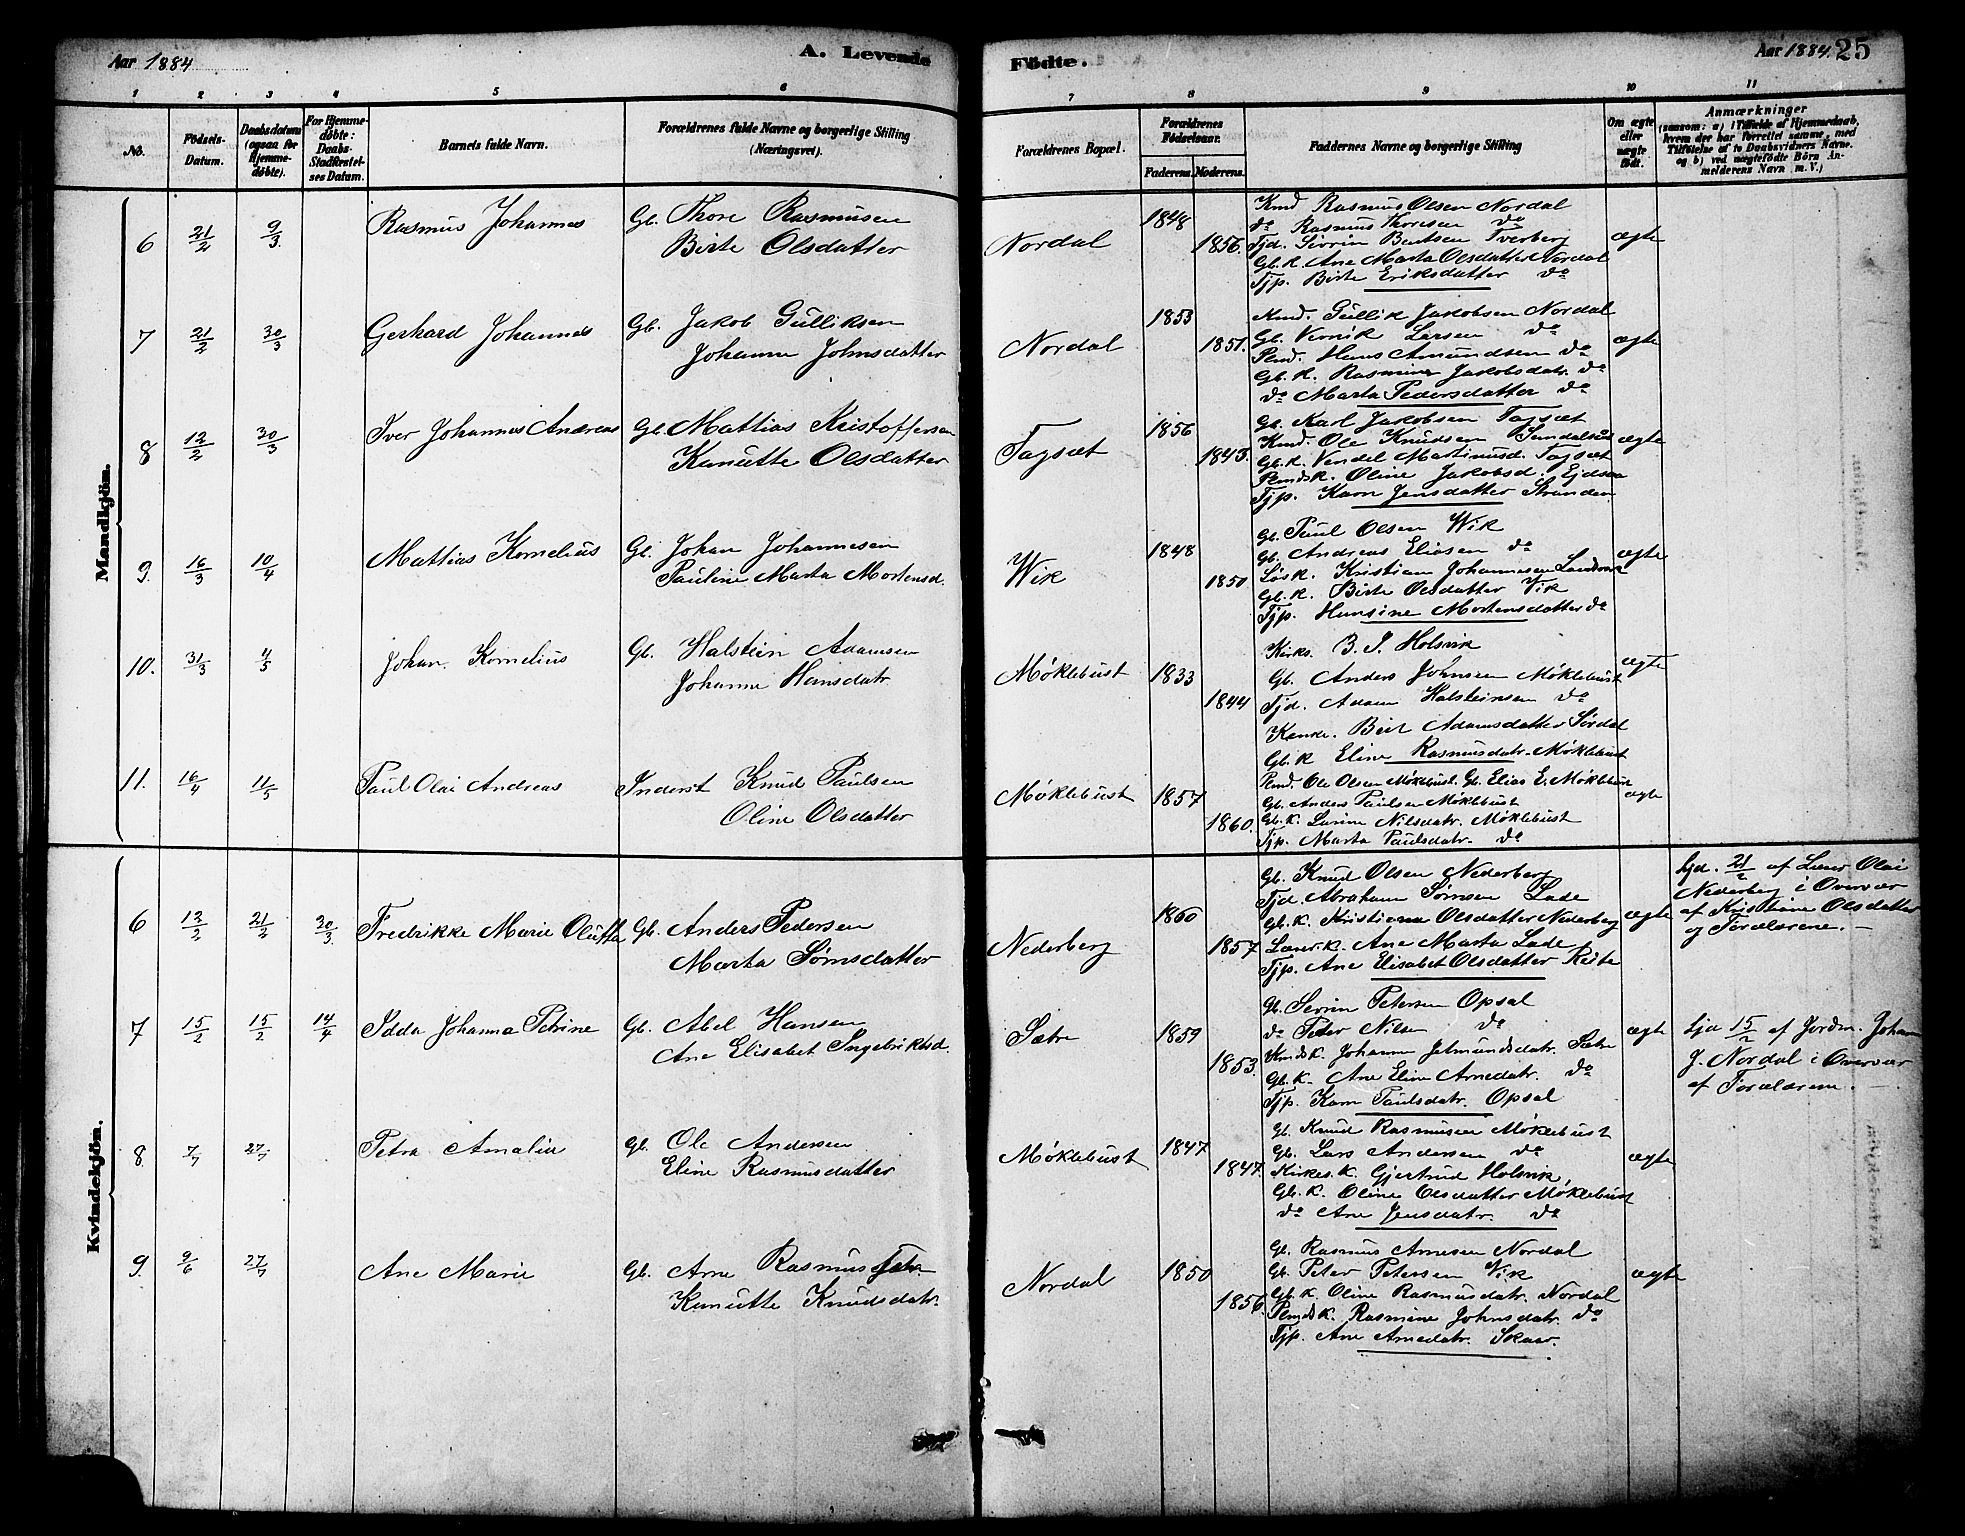 Aar 1884
A. Levende
Födte.
Aar 1884.
25
1 2 3 4 5 6 7 8 9 10 11
No.
Fødsels-Datum.
Daabsdatum (ogsaa for Hjemmedøbte).
For Hjemmedøbte: Daabs-Stadfæstelses Datum.
Barnets fulde Navn.
Forældrenes fulde Navne og borgerlige Stilling (Næringsvei).
Forældrenes Bopæl.
Forældrenes Fødselsaar.
Faderens. Moderens.
Faddernes Navne og borgerlige Stilling
Om ægte eller uægte født.
Anmærkninger
(saasom: a) i Tilfælde af Hjemmedaab, hvem der har forrettet samme, med Tilføielse af to Daabsvidners Navne. og b) ved uægtefødte Børn Anmelderens Navn m. V.)
Mandkjön.
6 21/2 9/3 Rasmus Johannes Gb. Thore Rasmusen
Birte Olsdatter
Nordal 1848 1856. ægte
Kmd Rasmus Olsen Nordal
do Rasmus Thoresen do
Tjd. Sivrin Bentsen Tverberg
Gb. K. Ane Marta Olsdatter Nordal
Tjp. Birte Eriksdatter do
7 21/2 30/3 Gerhard Johannes Gb. Jakob Gulliksen
Johanne Johnsdatter
Nordal 1853 1851. ægte
Kmd. Gullik Jakobsen Nordal
Gb. Larsen do
Pmd. Hans Amundsen do
Gb. K. Rasmine Jakobsdatr. do
do Marta Pedersdatter do
8 12/2 30/3 Iver Johannes Andreas Gb. Mattias Kristoffersen
Kanutte Olsdatter
Tagsæt 1856 1843. ægte
Gb. Karl Jakobsen Tagsæt
Kmd. Ole Knudsen
Gb. K. Vendel Martinusd. Tagsæt
Pmdsk. Oline Jakobsd.
Tjp. Karn Jensdatter Stranden
9. 16/3 10/4 Mattias Kornelius Gb. Johan Johannesen
Pauline Marta Mortensd.
Wik 1848 1850 ægte
Gb. Paul Olsen Wik
Gb. Andreas Eliasen do
Løsk. Kristian Johannesen
Gb. K. Birte Olsdatter Vik
Tjp. Hansine Mortensdatter do
10. 31/3 11/5 Johan Kornelius Gb. Halstein Adamsen
Johanne Hansdatr
Møklebust 1833 1844 ægte
Kirks. B. J. Holsvik
Gb. Anders Johnsen Møklebust
Tjd. Adam Halsteinsen do
Beret Adamsdatter Sørdal
Gb. K Eline Rasmusdatr. Møklebust
11. 16/4 11/5 Paul Olai Andreas Inderst Knud Paulsen
Oline Olsdatter
Møklebust 1857 1860. ægte
Pmd. Ole Olsen Møklebust. Gb. Elias E. Møklebust
Gb. Anders Paulsen Møklebust
Gb. K. Larine Nilsdatr. Møklebust
Tjp. Marta Paulsdatr. do
Kvindekjön.
6 12/2 21/2 30/3 Fredrikke Marie Olutta Gb. Anders Pedersen
Marta Sørnsdatter
Nederberg 1860 1857 ægte
Gb. Knud Olsen Nederberg
Tjd. Abraham Sørnsen Lade
Gb. K. Kristiana Olsdatter Nederberg
Lærerk. Ane Marta Lade
Tjp. Ane Elisabet Olsdatter
hjd. 21/2 af Lærer Olai
Nederberg i Overvær
af Kristiane Olsdatter
og Forældrene. —
7 15/2 15/2 14/4 Idda Johanna Petrine Gb. Abel Hansen
Ane Elisabet Ingebriktsd.
Sætre 1859 1853. ægte
Gb. Serrin Petersen Opsal
do Peter Nilsen do
Kmdsk. Johanne Jetmundsdatr. Sætre
Gb. K. Ane Eline Arnedatr. do
Tjp. Karn Paulsdatr. Opsal
hjd 15/2 af Jordm. Johan
J. Nordal i Overvær
af Forældrene. —
8 7/7 27/7 Petra Amalia Gb. Ole Andersen
Eline Rasmusdatter
Møklebust 1847 1847. ægte
Gb. Knud Rasmusen Møklebust
Gb. Lars Andersen do
Kirkes. K. Gjertrud Holsvik
Gb. K. Oline Olsdatter Møklebust
do Ane Jensdatr. do
9. 9/6 27/7 Ane Marie Gb. Arne Rasmus
Kanutte Knudsdatr.
Nordal 1850 1856. ægte
Gb. Rasmus Arnesen Nordal
Gb. Peter Petersen Vik
Gb. K. Oline Rasmusdatr. Nordal
Pmdsk. Rasmine Johnsdatr. do
Tjp. Ane Arnedatr. Skaar.